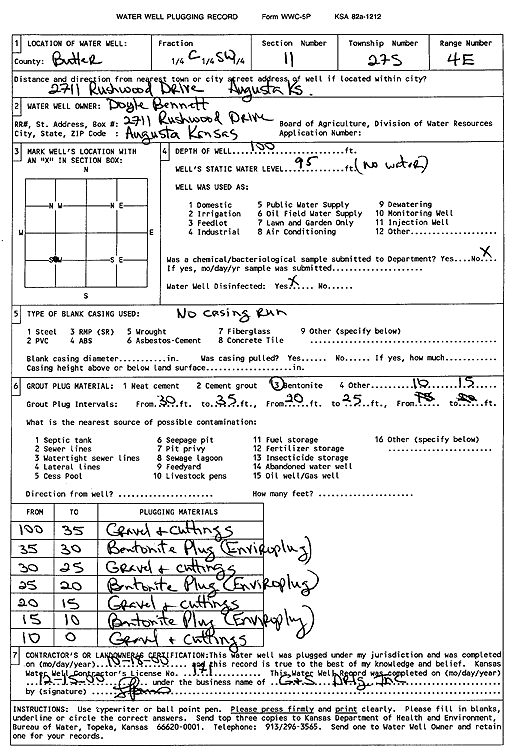 WATER WELL PLUGGING RECORD Form WWC-5P KSA 82a-1212
1 LOCATION OF WATER WELL: Fraction Section Number Township Number Range Number
County: Butler 1/4 C 1/4 SW 1/4 11 27S 4E
Distance and direction from nearest town or city street address of well if located within city?
2711 Rushwood Drive Augusta Ks.
2 WATER WELL OWNER: Doyle Bennett
RR#, St. Address, Box #: 2711 Rushwood Drive Board of Agriculture, Division of Water Resources
City, State, ZIP Code : Augusta Kansas Application Number:
3 MARK WELL'S LOCATION WITH AN "X" IN SECTION BOX:
N
N W N E
W E
S W S E
S
4 DEPTH OF WELL 100 ft.
WELL'S STATIC WATER LEVEL 95 ft. (no water)
WELL WAS USED AS:
1 Domestic 5 Public Water Supply 9 Dewatering
2 Irrigation 6 Oil Field Water Supply 10 Monitoring Well
3 Feedlot 7 Lawn and Garden Only 11 Injection Well
4 Industrial 8 Air Conditioning 12 Other
Was a chemical/bacteriological sample submitted to Department? Yes....No X
If yes, mo/day/yr sample was submitted
Water Well Disinfected: Yes X No
5 TYPE OF BLANK CASING USED: No casing Run
1 Steel 3 RMP (SR) 5 Wrought 7 Fiberglass 9 Other (specify below)
2 PVC 4 ABS 6 Asbestos-Cement 8 Concrete Tile
Blank casing diameter in. Was casing pulled? Yes No If yes, how much
Casing height above or below land surface in.
6 GROUT PLUG MATERIAL: 1 Neat cement 2 Cement grout 3 Bentonite 4 Other
Grout Plug Intervals: From 30 ft. to 35 ft., From 20 ft. to 25 ft., From 10 to 15 ft.
What is the nearest source of possible contamination:
1 Septic tank 6 Seepage pit 11 Fuel storage 16 Other (specify below)
2 Sewer lines 7 Pit privy 12 Fertilizer storage
3 Watertight sewer lines 8 Sewage lagoon 13 Insecticide storage
4 Lateral lines 9 Feedyard 14 Abandoned water well
5 Cess Pool 10 Livestock pens 15 Oil well/Gas well
Direction from well? How many feet?
FROM TO PLUGGING MATERIALS
100 35 Gravel + cuttings
35 30 Bentonite Plug (Enviroplug)
30 25 Gravel + cuttings
25 20 Bentonite Plug (Enviroplug)
20 15 Gravel + cuttings
15 10 Bentonite Plug (Enviroplug)
10 0 Gravel + cuttings
7 CONTRACTOR'S OR LANDOWNER'S CERTIFICATION: This water well was plugged under my jurisdiction and was completed
on (mo/day/year) and this record is true to the best of my knowledge and belief. Kansas
Water Well Contractor's License No. 171 This Water Well Record was completed on (mo/day/year)
12-15-00 under the business name of Drlg. Inc
by (signature)
INSTRUCTIONS: Use typewriter or ball point pen. Please press firmly and print clearly. Please fill in blanks,
underline or circle the correct answers. Send top three copies to Kansas Department of Health and Environment,
Bureau of Water, Topeka, Kansas 66620-0001. Telephone: 913/296-3565. Send one to Water Well Owner and retain
one for your records.